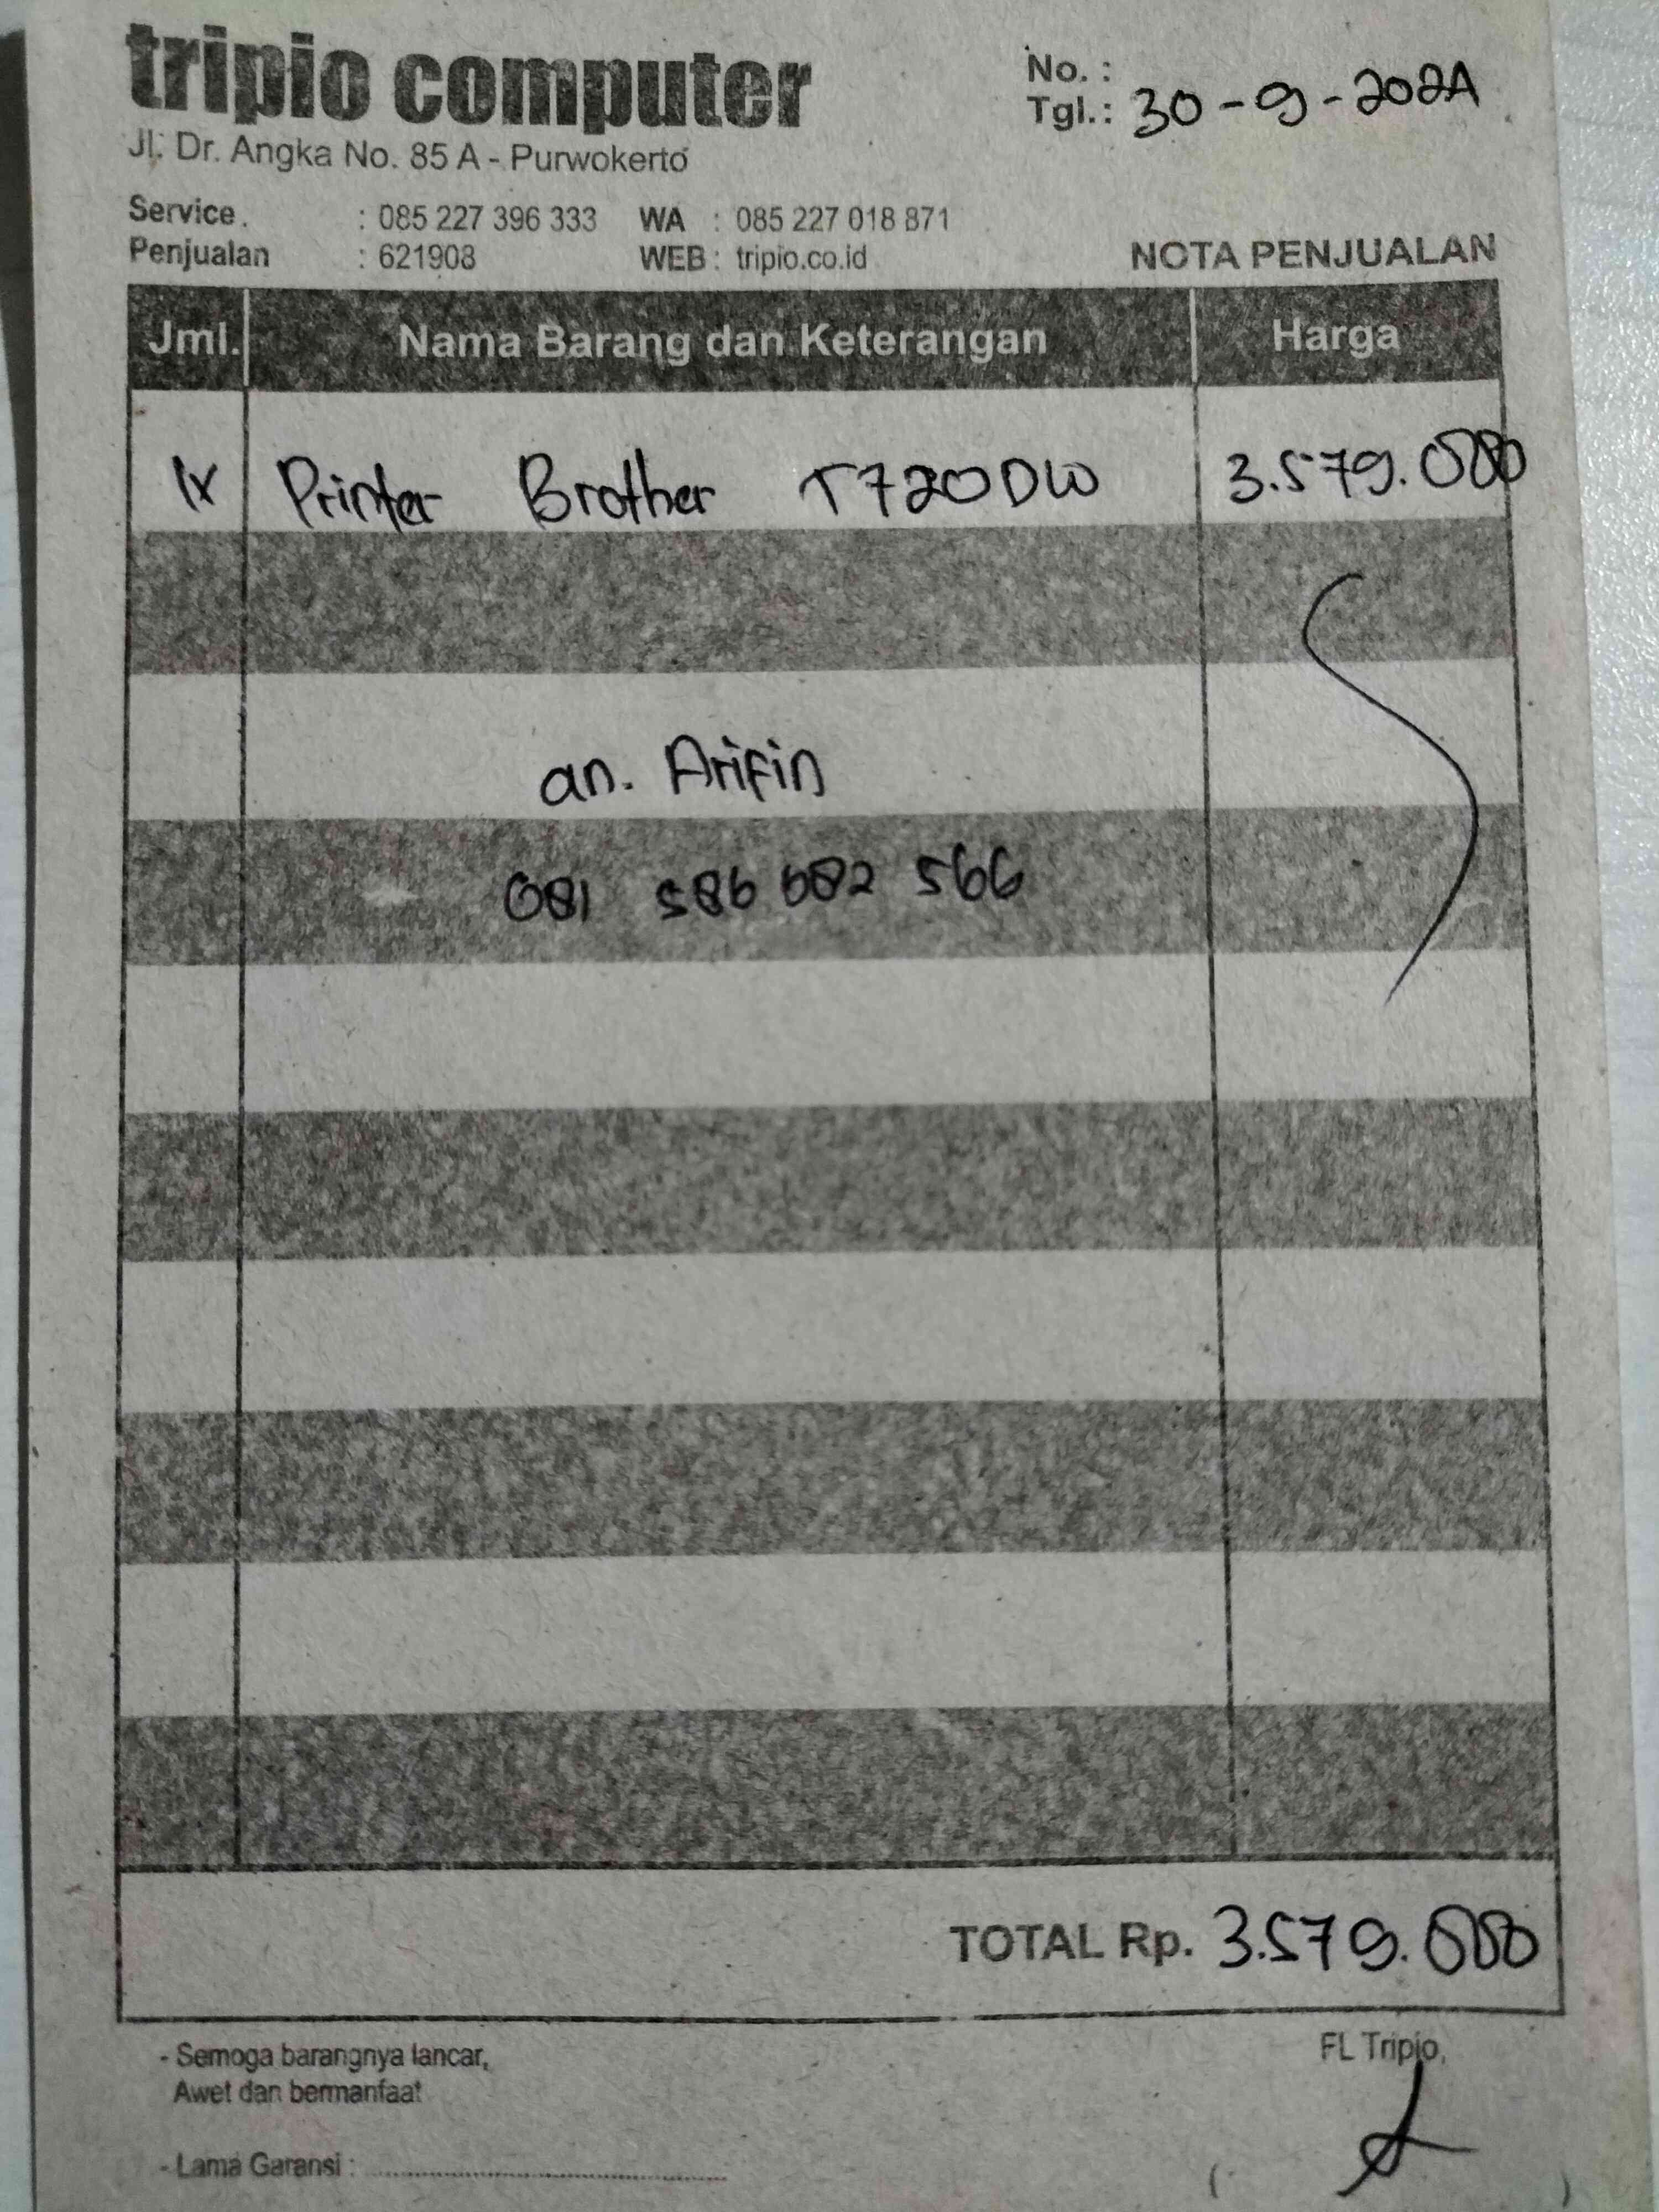 tripio computer
Jl. Dr. Angka No. 85 A - Purwokerto
No. :
Tgl.: 30 - 9 - 2024
Service. : 085 227 396 333 WA : 085 227 018 871
Penjualan : 621908 WEB : tripio.co.id
NOTA PENJUALAN
Jml. Nama Barang dan Keterangan Harga
1x Printer Brother T720DW 3.579.000
an. Arifin
081 586 682 566
TOTAL Rp. 3.579.000
- Semoga barangnya lancar,
Awet dan bermanfaat
FL Tripio,
- Lama Garansi : ........................................
( )